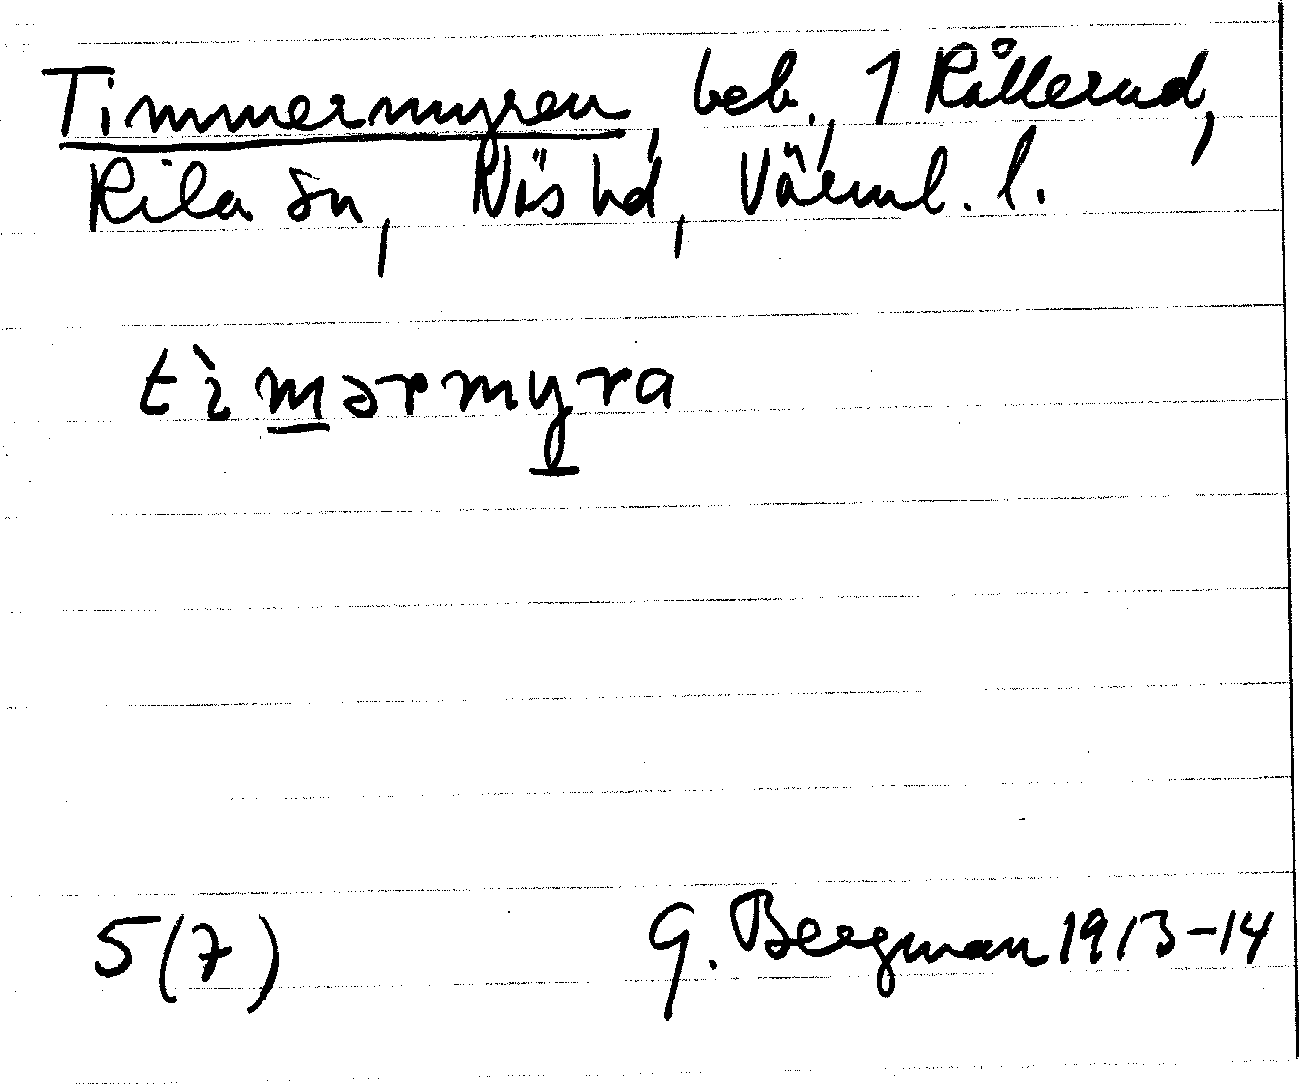 Timmermyren, beb., 1 Rållerud,
Kila sn, Näs hd, Värml. l.
tìmərmyra
5(7) G. Bergman 1913-14